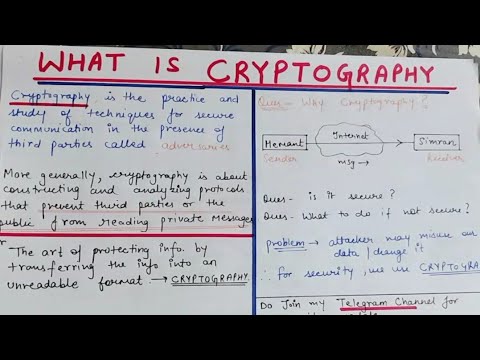 WHAT IS CRYPTOGRAPHY
Cryptography is the practice and
study of techniques for secure
communication in the presence of
third parties called adversaries
More generally, cryptography is about
constructing and analyzing protocols
that prevent third parties or the
public from reading private messages
The art of protecting info. by
transferring the info into an
unreadable format → CRYPTOGRAPHY
Ques - Why Cryptography?
Internet
Hemant
Simran
Sender
msg →
Ques - is it secure?
Ques - What to do if not secure?
problem → attacker may misuse our
data / change it
∴ For security, we use CRYPTOGRA
Do Join my Telegram Channel for